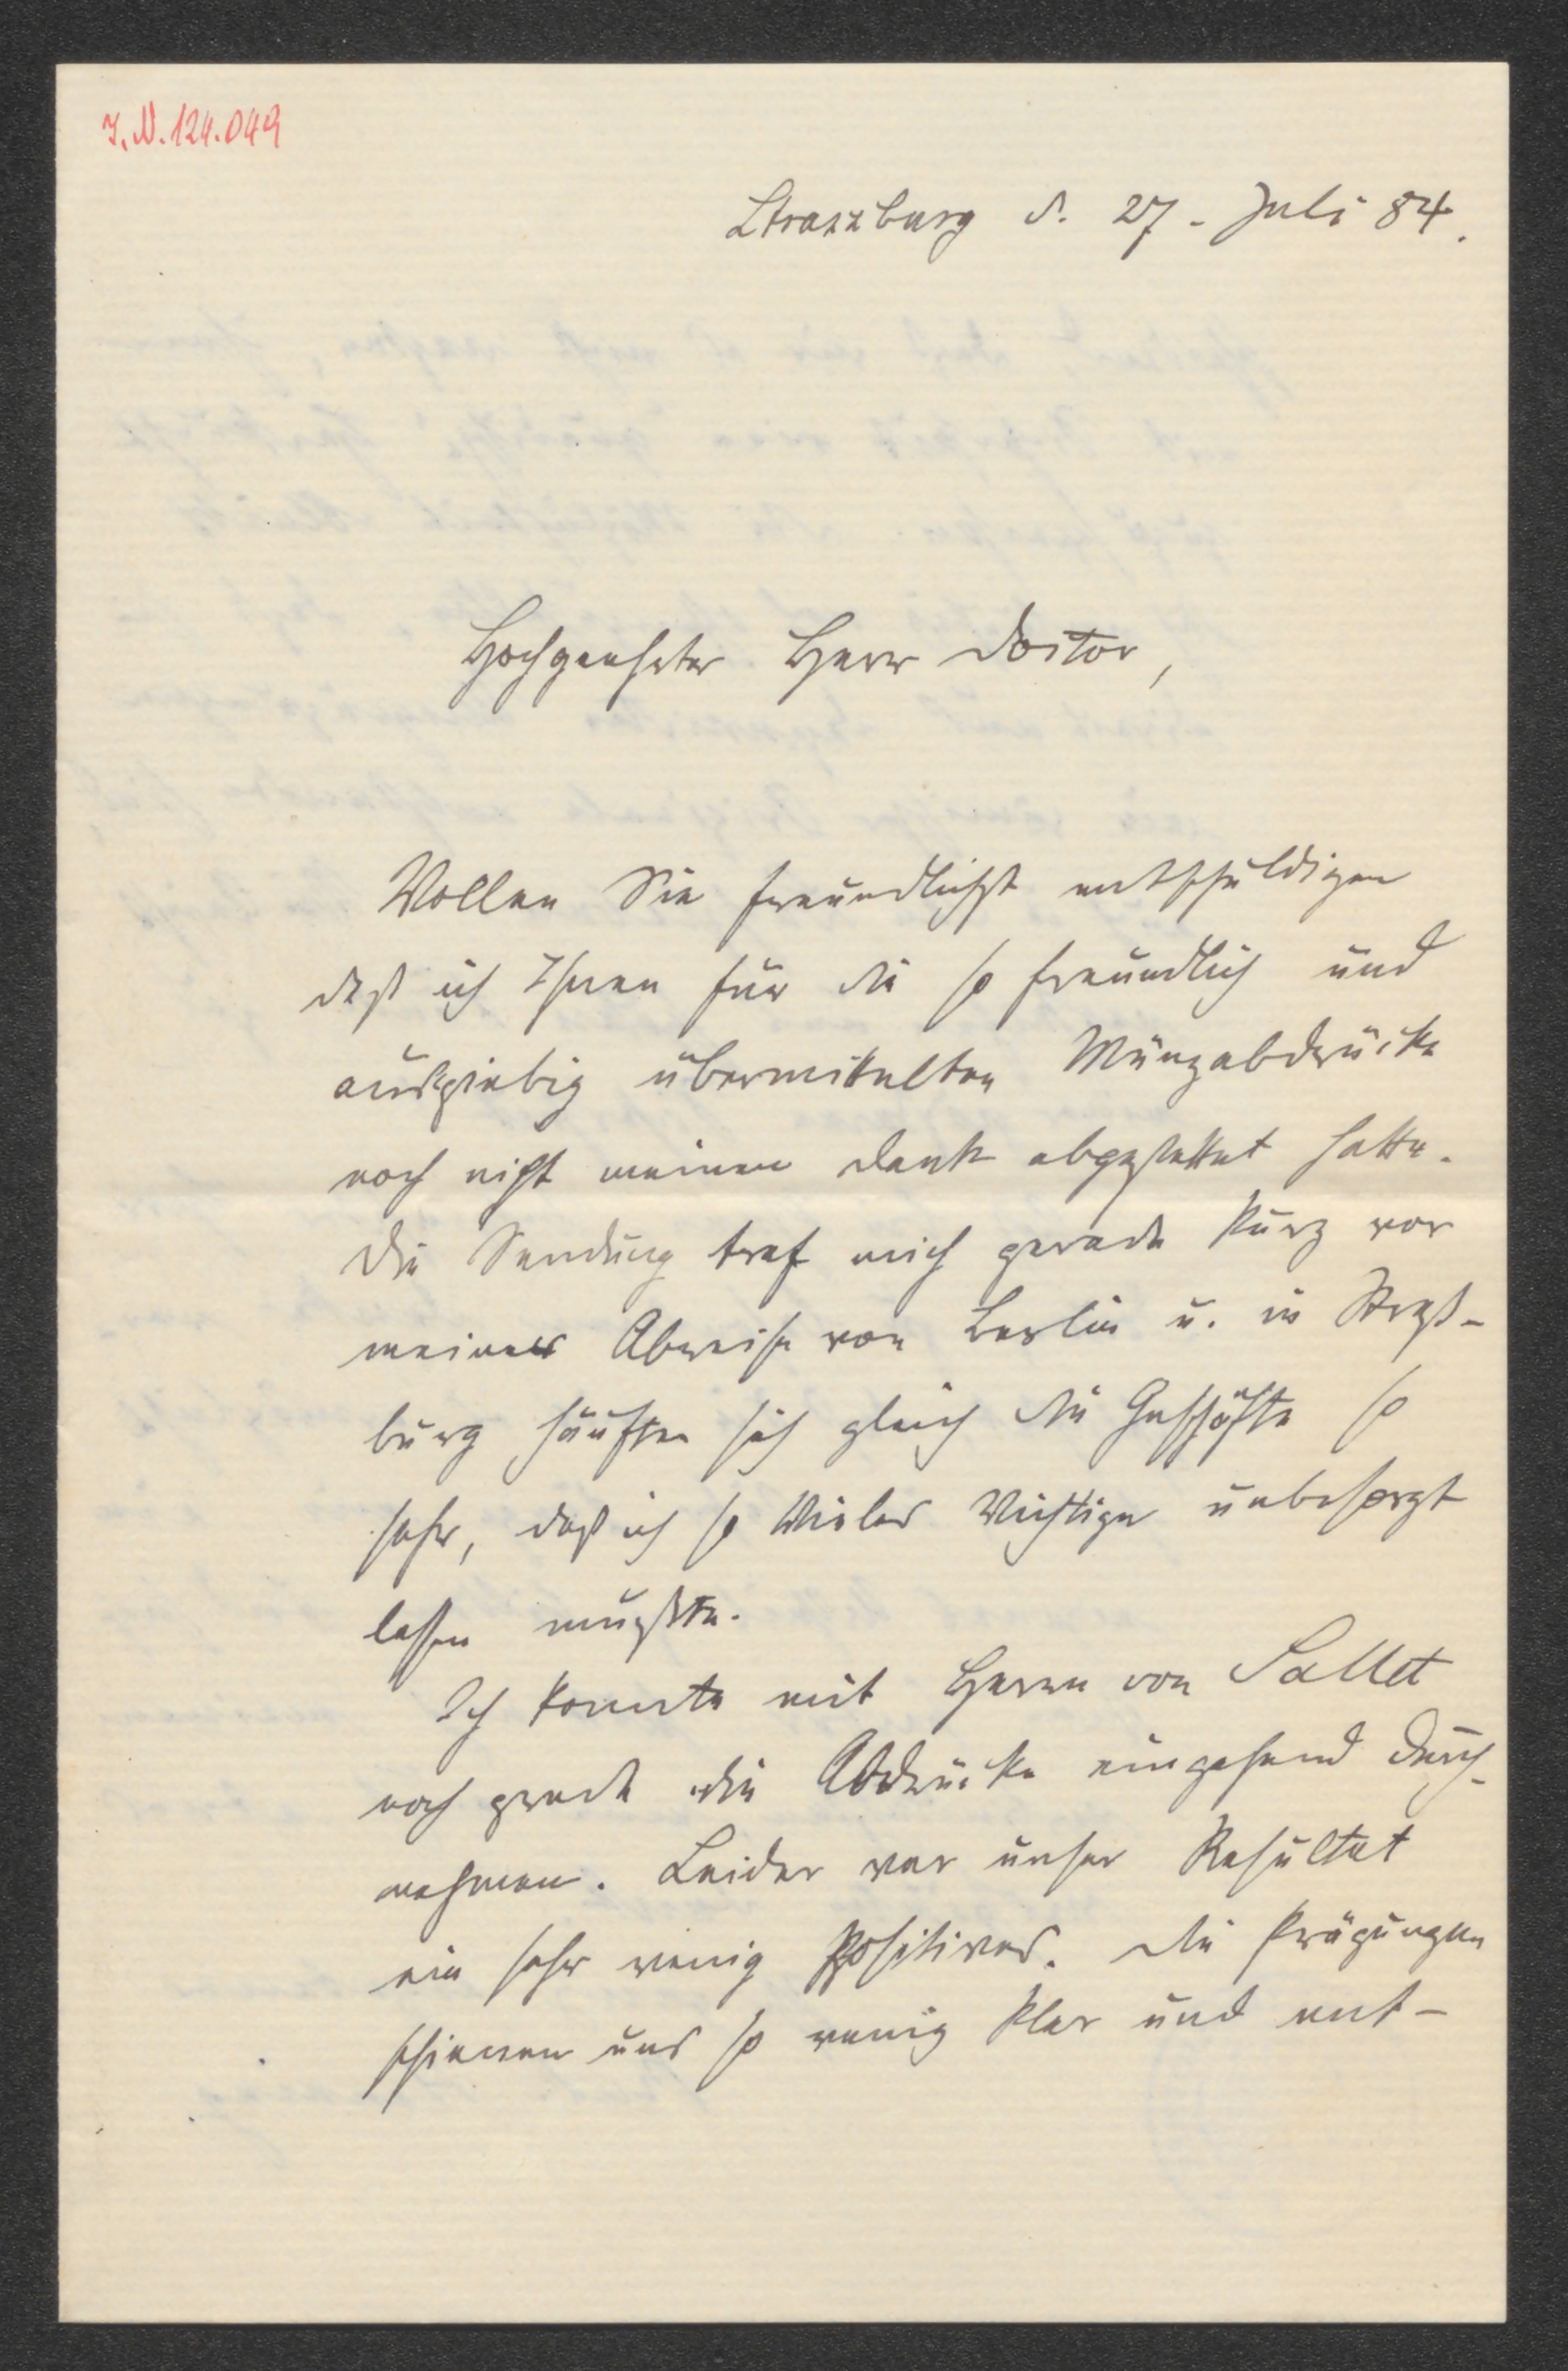 I.N. 124.049
Straszburg d. 27. Juli 84.
Hochgeehrter Herr Doctor,
Wollen Sie freundlichst entschuldigen
daß ich Ihnen für die so freundlich und
ausgiebig übermittelten Münzabdrücke
noch nicht meinen Dank abgestattet hatte.
Die Sendung traf mich gerade kurz vor
meiner Abreise von Berlin u. in Straß-
burg häuften sich gleich die Geschäfte so
sehr, daß ich so Vieles Wichtige unbesorgt
lassen mußte.
Ich konnte mit Herrn von Sallet
noch gerade die Abdrücke eingehend durch-
nehmen. Leider war unser Resultat
ein sehr wenig Positives. Die Prägungen
schienen uns so wenig klar und ent-